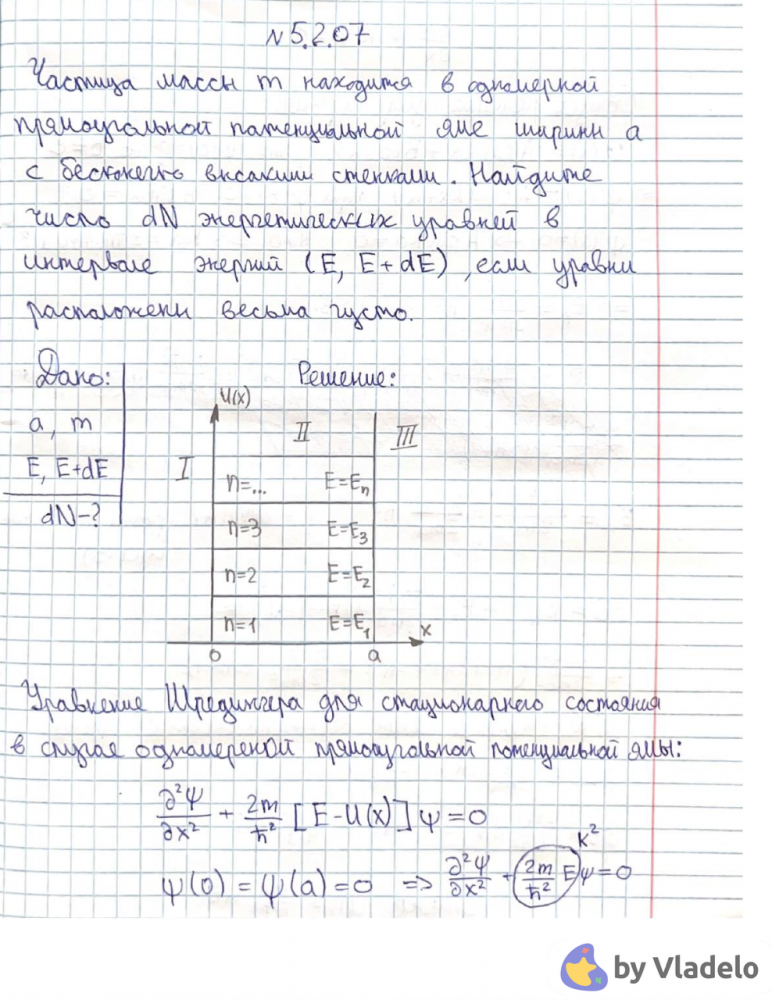 N 5.2.07
Частица массы m находится в одномерной
прямоугольной потенциальной яме ширины a
с бесконечно высокими стенками. Найдите
число dN энергетических уровней в
интервале энергий (E, E+dE), если уровни
расположены весьма густо.
Дано:
a, m
E, E+dE
dN-?
Решение:
U(x)
I
II
III
n=... E=Eₙ
n=3 E=E₃
n=2 E=E₂
n=1 E=E₁
x
0 a
Уравнение Шредингера для стационарного состояния
в случае одномереной прямоугольной потенциальной ямы:
∂²Ψ/∂x² + 2m/ħ² [E-U(x)]ψ=0
k²
ψ(0) = ψ(a) = 0 ⇒ ∂²Ψ/∂x² + 2m/ħ² Eψ=0
by Vladelo